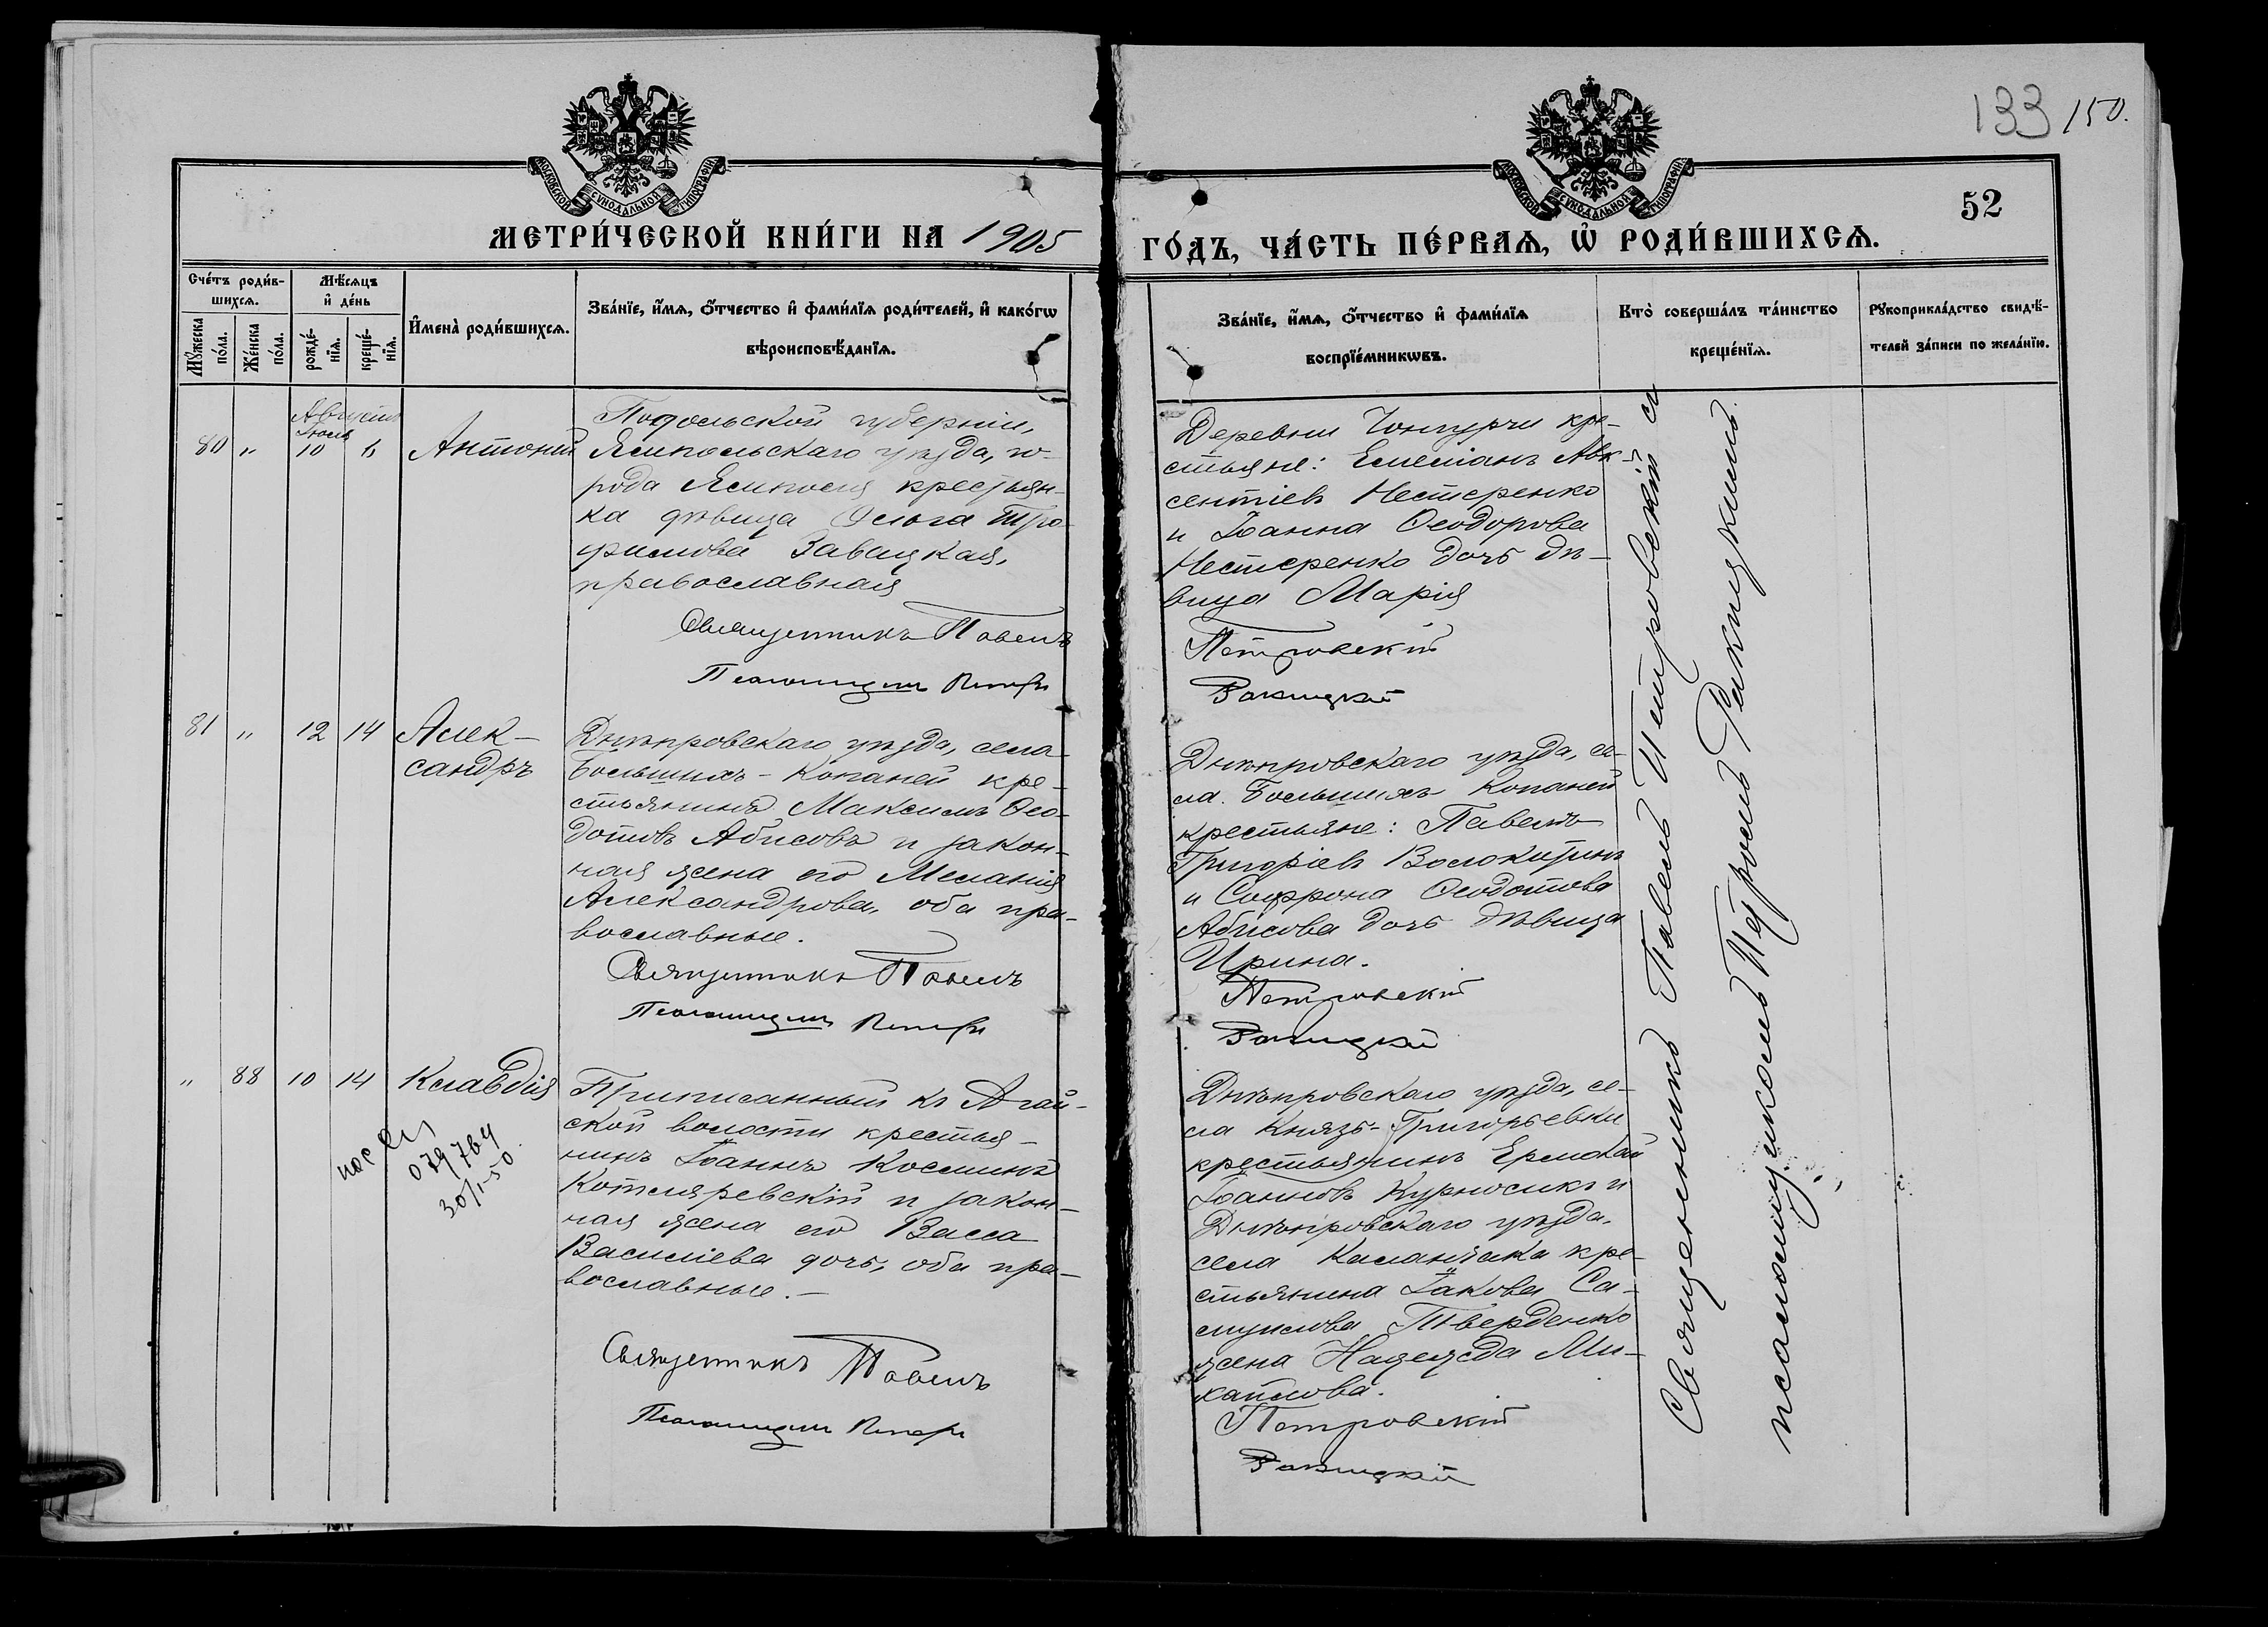 133 150.
52
МОСКОВСКОЙ СѴНОДАЛЬНОЙ ТИПОГРАФІИ
МОСКОВСКОЙ СѴНОДАЛЬНОЙ ТИПОГРАФІИ
МЕТРИ́ЧЕСКОЙ КНИ́ГИ НА 1905
ГО́ДЪ, ЧА́СТЬ ПЕ́РВАѦ, Ѡ҆ РОДИ́ВШИХСѦ.
Сче́тъ роди́в-
шихсѧ.
Мꙋ́жеска
по́ла.
Же́нска
по́ла.
Мѣ́сѧцъ
и҆ де́нь
рожде́-
нїѧ.
креще́-
нїѧ.
И҆мена̀ роди́вшихсѧ.
Зва́нїе, и҆́мѧ, ѻ҆́тчество и҆ фами́лїѧ роди́телей, и҆ како́гѡ
вѣроисповѣ́данїѧ.
Зва́нїе, и҆́мѧ, ѻ҆́тчество и҆ фами́лїѧ
воспрїе́мникѡвъ.
Кто̀ соверша́лъ та́инство
креще́нїѧ.
Рꙋкоприкла́дство свидѣ́-
телей за́писи по жела́нїю.
Августъ
Іюль
80 " 10 6 Антоній
Подольской губерніи,
Ямпольскаго уѣзда, го-
рода Ямполя крестьян-
ка дѣвица Ольга Тро-
фимова Завацкая,
православная
Священникъ Павелъ
Псаломщикъ Петръ
Деревни Чонгурчи кре-
стьяне: Емеліанъ Авк-
сентіевъ Нестеренко
и Іоанна Ѳеодорова
Нестеренко дочь дѣ-
вица Марія
Петровскій
Ракицкій
81 " 12 14 Алек-
сандръ
Днѣпровскаго уѣзда, села
Большихъ-Копаней кре-
стьянинъ Максимъ Ѳео-
дотовъ Абисовъ и закон-
ная жена его Меланія
Александрова, оба пра-
вославные.
Священникъ Павелъ
Псаломщикъ Петръ
Днѣпровскаго уѣзда, се-
ла Большихъ Копаней
крестьяне: Павелъ
Григоріевъ Волокитинъ
и Софрона Ѳеодотова
Абисова дочь дѣвица
Ирина.
Петровскій
Ракицкій
" 88 10 14 Клавдія
079764
30/I-50.
Приписанный къ Агай-
ской волости крестья-
нинъ Іоаннъ Косминъ
Котляревскій и закон-
ная жена его Васса
Василіева дочь, оба пра-
вославные.-
Священникъ Павелъ
Псаломщикъ Петръ
Днѣпровскаго уѣзда, се-
ла Князь-Григорьевки
крестьянинъ Ермолай
Іоанновъ Курносикъ и
Днѣпровскаго уѣзда,
села Каланчака кре-
стьянина Іакова Са-
муилова Тверденко
жена Надежда Ми-
хайлова.
Петровскій
Ракицкій
Священникъ Павелъ Петровскій съ
псаломщикомъ Петромъ Ракицкимъ.